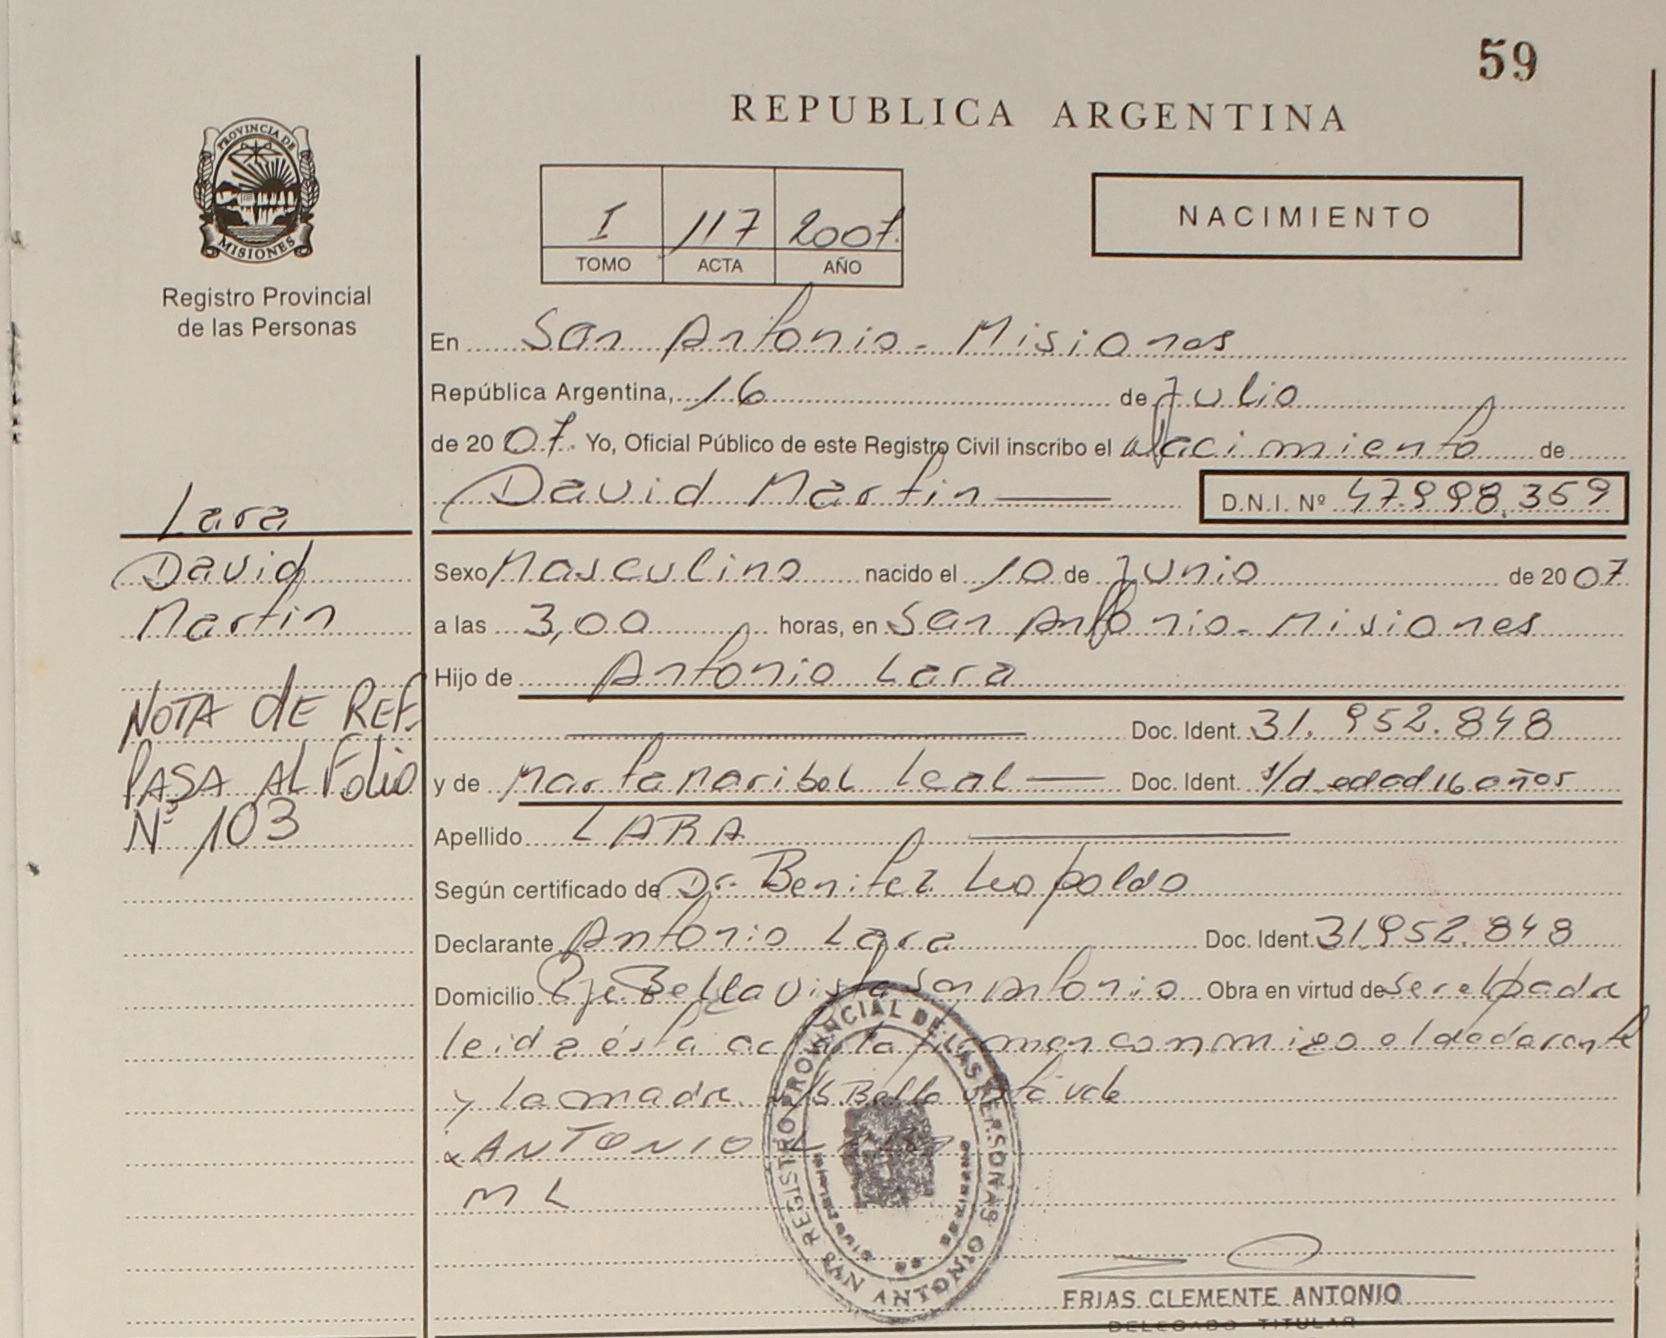 59
REPUBLICA ARGENTINA
PROVINCIA DE
MISIONES
Registro Provincial
de las Personas
I 117 2007.
TOMO ACTA AÑO
NACIMIENTO
En San Antonio - Misiones
República Argentina, 16 de Julio
de 2007. Yo, Oficial Público de este Registro Civil inscribo el Nacimiento de
David Martin D.N.I. Nº 47.998.359
Lara
David
Martin
NOTA de REF.
PASA AL Folio
Nº 103
Sexo Masculino nacido el 10 de Junio de 2007
a las 3,00 horas, en San Antonio - Misiones
Hijo de Antonio Lara
Doc. Ident. 31.952.848
y de Marta Maribel Leal Doc. Ident. s/d edad 16 años
Apellido LARA
Según certificado de Dr. Benitez Leopoldo
Declarante Antonio Lara Doc. Ident. 31.952.848
Domicilio Pje. Bella vista San Antonio Obra en virtud de ser el padre
leida ésta acta firman conmigo el declarante
y la madre. Bella vista vale
ANTONIO LARA
M L
REGISTRO PROVINCIAL DE LAS PERSONAS
SAN ANTONIO
FRIAS CLEMENTE ANTONIO
DELEGADO TITULAR